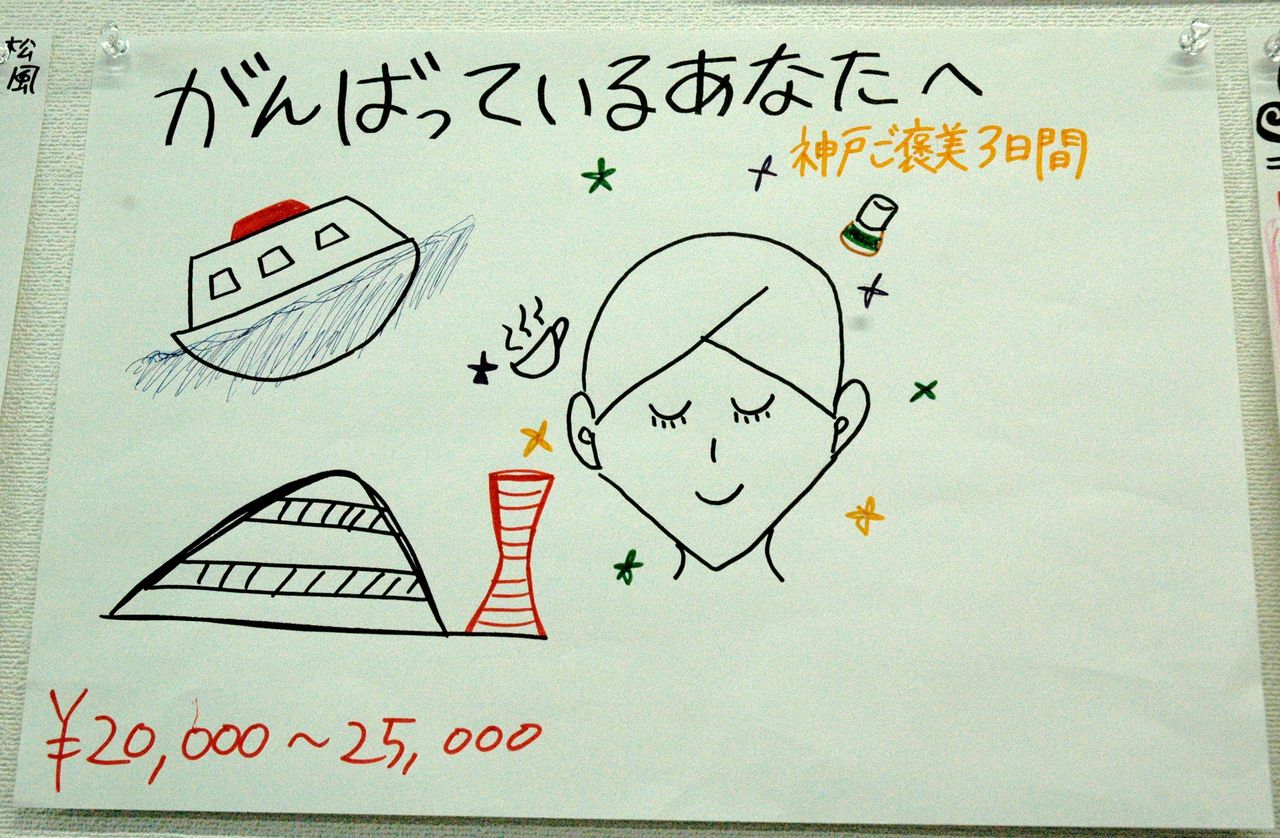 松風
がんばっているあなたへ
神戸ご褒美3日間
¥20,000～25,000